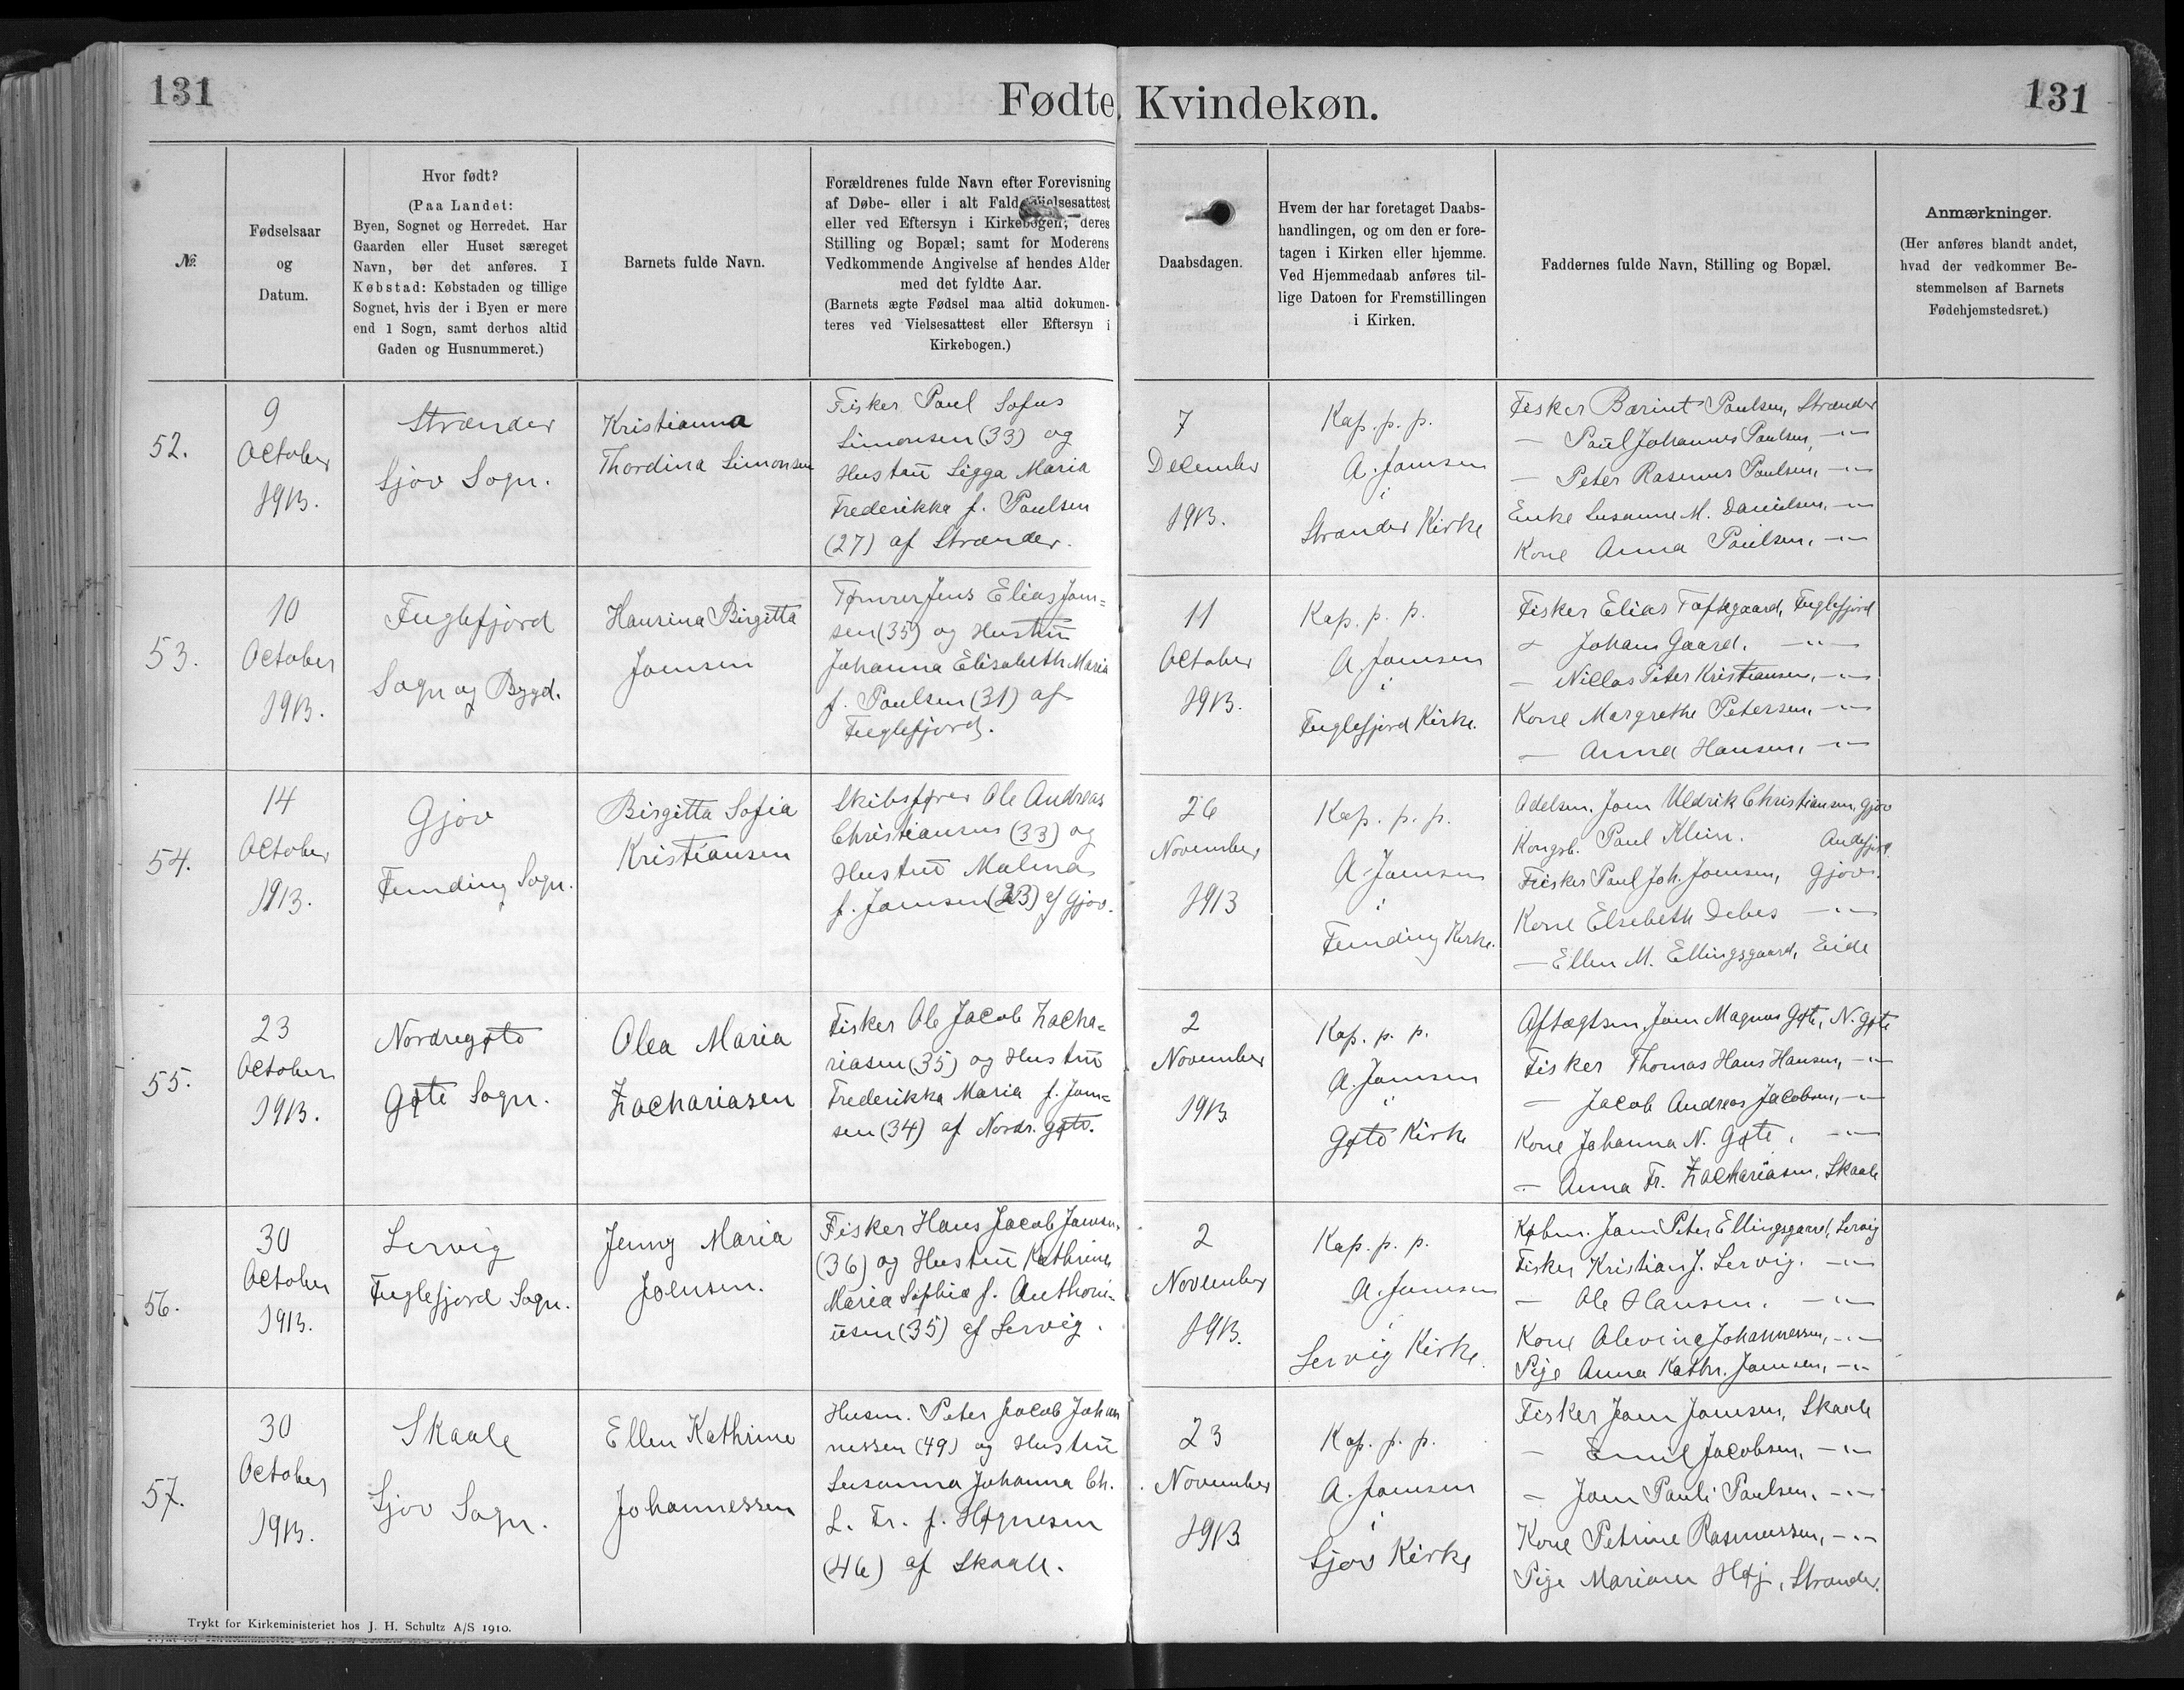 131
Fødte, Kvindekøn.
131
№.
Fødselsaar
og
Datum.
Hvor født?
(Paa Landet:
Byen, Sognet og Herredet. Har
Gaarden eller Huset særeget
Navn, bør det anføres. I
Købstad: Købstaden og tillige
Sognet, hvis der i Byen er mere
end 1 Sogn, samt derhos altid
Gaden og Husnummeret.)
Barnets fulde Navn.
Forældrenes fulde Navn efter Forevisning
af Døbe- eller i alt Fald Vielsesattest
eller ved Eftersyn i Kirkebogen; deres
Stilling og Bopæl; samt for Moderens
Vedkommende Angivelse af hendes Alder
med det fyldte Aar.
(Barnets ægte Fødsel maa altid dokumen-
teres ved Vielsesattest eller Eftersyn i
Kirkebogen.)
Daabsdagen.
Hvem der har foretaget Daabs-
handlingen, og om den er fore-
tagen i Kirken eller hjemme.
Ved Hjemmedaab anføres til-
lige Datoen for Fremstillingen
i Kirken.
Faddernes fulde Navn, Stilling og Bopæl.
Anmærkninger.
(Her anføres blandt andet,
hvad der vedkommer Be-
stemmelsen af Barnets
Fødehjemstedsret.)
52.
9
October
1913.
Strænder
Sjov Sogn.
Kristianna
Thordina Simonsen
Fisker Paul Sofus
Simonsen (33) og
Hustrū Sigga Maria
Frederikka f. Paulsen
(27) af Strænder.
7
December
1913.
Kap. p. p.
A. Joensen
i
Strænder Kirke
Fisker Bærint Paulsen, Strænder
— Paul Johannes Paulsen, -„-
— Peter Rasmus Paulsen, -„-
Enke Susanne M. Danielsen, -„-
Kone Anna Paulsen, -„-
53.
10
October
1913.
Fuglefjord
Sogn og Bygd.
Hansina Birgitta
Joensen
Tømrer Jens Elias Joen=
sen (35) og Hustrū
Johanna Elisabeth Maria
f. Paulsen (31) af
Fuglefjord.
11
October
1913.
Kap. p. p.
A. Joensen
i
Fuglefjord Kirke.
Fisker Elias Toftegaard, Fuglefjord
— Johan Gaard. -„-
— Niclas Peter Kristiansen, -„-
Kone Margrethe Petersen, -„-
— Anna Hansen, -„-
54.
14
October
1913.
Gjov
Funding Sogn.
Birgitta Sofia
Kristiansen
Skibsfører Ole Andreas
Christiansen (33) og
Hustrū Malena
f. Joensen (23) af Gjov.
26
November
1913
Kap. p. p.
A. Joensen
i
Funding Kirke.
Odelsm. Joen Uldrik Christiansen, Gjov
Kongsb. Paul Klein. Andefjord.
Fisker Paul Joh. Joensen, Gjov.
Kone Elsebeth Debes -„-
— Ellen M. Ellingsgaard, Eide
55.
23
October
1913.
Nordregøte
Gøte Sogn.
Olea Maria
Zachariasen
Fisker Ole Jacob Zacha=
riasen (35) og Hustrū
Frederikka Maria f. Joen=
sen (34) af Nordr. gøte.
2
November
1913.
Kap. p. p.
A. Joensen
i
Gøte Kirke
Aftægtsm. Joen Magnus Gøte, N. Gøte
Fisker Thomas Hans Hansen, -„-
— Jacob Andreas Jacobsen, -„-
Kone Johanna N. Gøte, -„-
— Anna Fr. Zachariasen, Skaale
56.
30
October
1913.
Lervig
Fuglefjord Sogn.
Jenny Maria
Joensen.
Fisker Hans Jacob Joensen
(36) og Hustrū Kathrine
Maria Sophia f. Anthoni-
usen (35) af Lervig.
2
November
1913.
Kap. p. p.
A. Joensen
i
Lervig Kirke.
Købm. Joen Peter Ellingsgaard, Lervig
Fisker Kristian J. Lervig. -„-
— Ole Hansen. -„-
Kone Olevina Johannesen, -„-
Pige Anna Kathr. Joensen, -„-
57.
30
October
1913.
Skaale
Sjov Sogn.
Ellen Kathrine
Johannessen
Husm. Peter Jacob Johan
nessen (49) og Hustrū
Susanna Johanna Ch.
L. Fr. f. Høgnesen
(46) af Skaale.
23
November
1913.
Kap. p. p.
A. Joensen
i
Sjov Kirke
Fisker Joen Joensen, Skaale
— Emil Jacobsen, -„-
— Joen Pauli Poulsen. -„-
Kone Petrine Rasmussen, -„-
Pige Mariane Høj, Strænder.
Trykt for Kirkeministeriet hos J. H. Schultz A/S 1910.